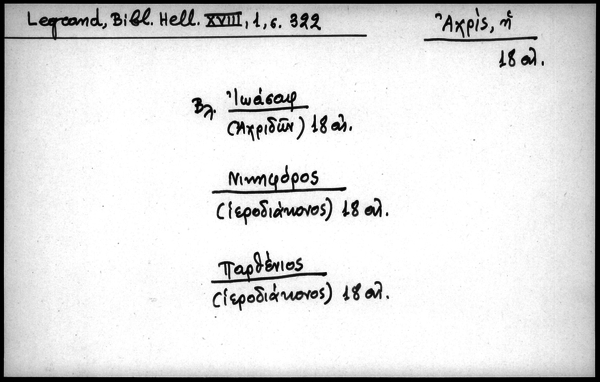 Legrand, Bibl. Hell. XVIII, 1, σ. 322
Ἀχρίς, ἡ
18 αἰ.
Βλ. Ἰωάσαφ
(Ἀχριδῶν) 18 αἰ.
Νικηφόρος
(ἱεροδιάκονος) 18 αἰ.
Παρθένιος
(ἱεροδιάκονος) 18 αἰ.